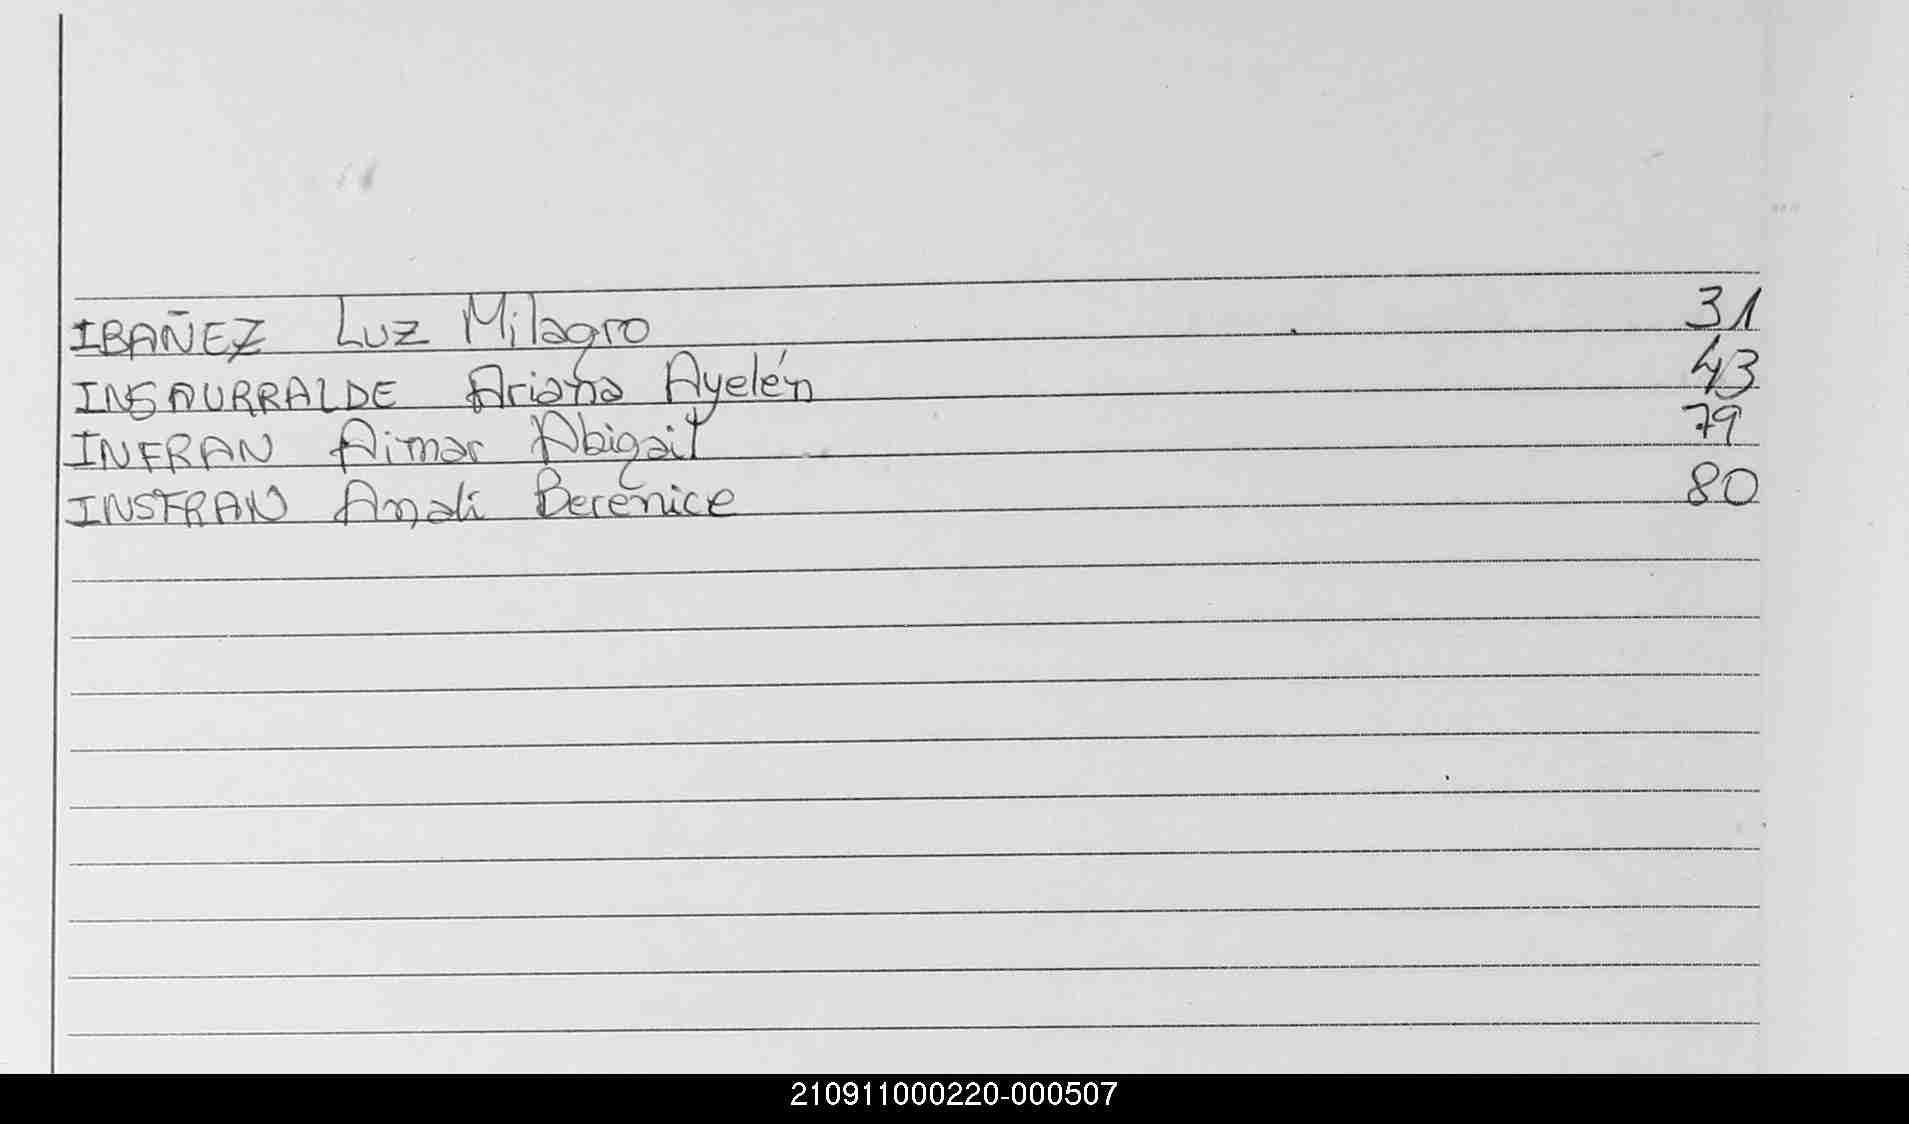 IBAÑEZ Luz Milagro 31
INSAURRALDE Ariana Ayelén 43
INFRAN Aimar Abigail 79
INSFRAN Anali Berenice 80
210911000220-000507